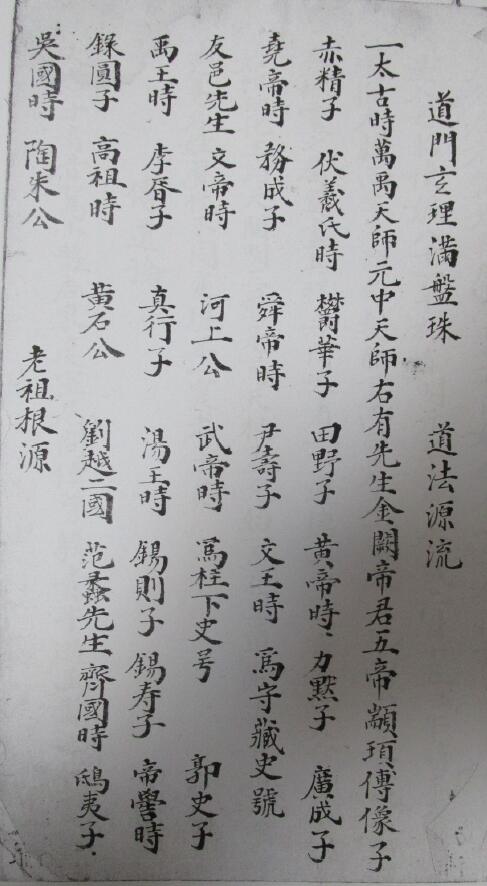 道門玄理滿盤珠 道法源流
一太古時萬禺天師元中天師右有先生金闕帝君五帝顓頊傅像子
赤精子 伏羲氏時 欝華子 田野子 黃帝時 力默子 廣成子
堯帝時 務成子 舜帝時 尹壽子 文王時 為守藏史號
友邑先生 文帝時 河上公 武帝時 為柱下史号 郭史子
禹王時 李胥子 真行子 湯王時 錫則子 錫寿子 帝嚳時
錄圓子 高祖時 黃石公 劉越二國 范蠡先生 齊國時 鴟夷子
吳國時 陶朱公 老祖根源